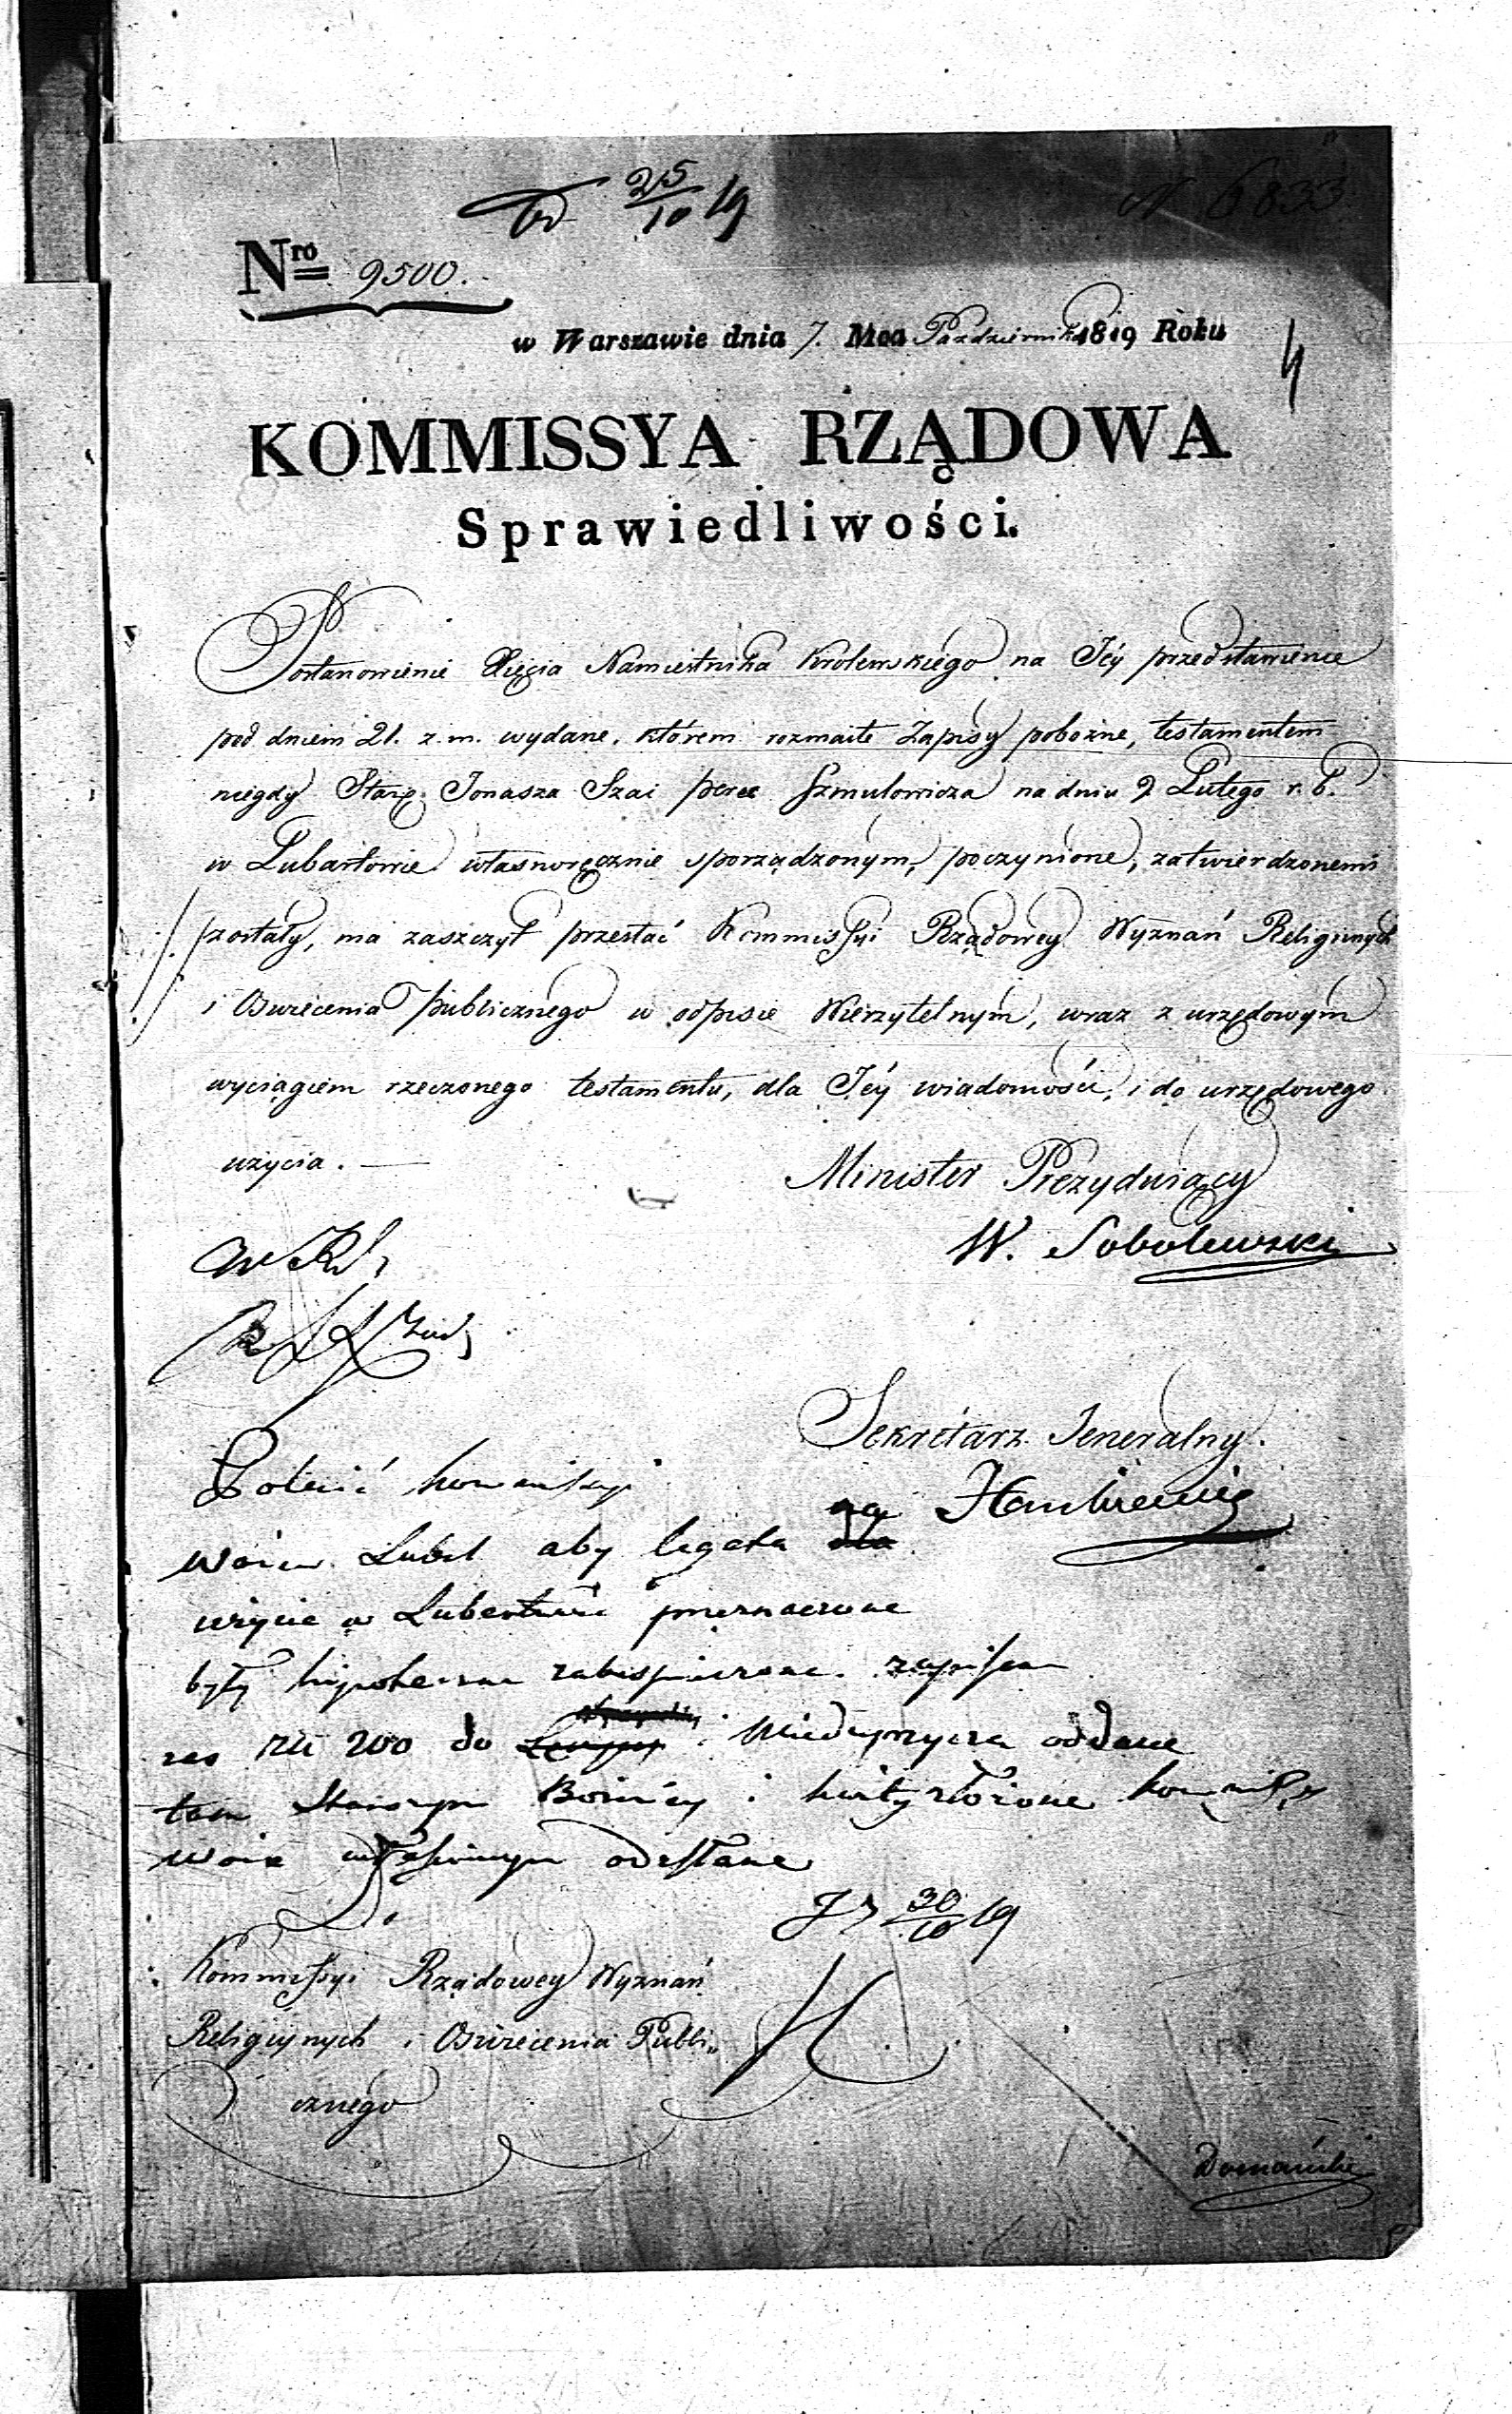 25/10 19
N 6833
Nro 9500.
w Warszawie dnia 7. Mca Pazdziernika 1819 Roku
4
KOMMISSYA RZĄDOWA
Sprawiedliwości.
Postanowienie Xięcia Namiestnika Krolewskiego na Jéy przedstawienie
pod dniem 21. z. m. wydane, którem rozmaite Zapisy pobożne, testamentem
niegdy Staro. Jonasza Szai Szmulowicza na dniu 9 Lutego r. b.
w Lubartowie własnoręcznie sporządzonym, poczynione, zatwierdzonemi
zostały, ma zaszczyt przesłać Kommissyi Rządowey Wyznań Religijnych
i Oświecenia publicznego w odpisie Wierzytelnym, wraz z urzędowym
wyciągiem rzeczonego testamentu, dla Jéy wiadomości, i do urzędowego
użycia. —
Minister Prezyduiący
W. Sobolewski
Sekretarz Jeneralny.
Hankiewicz
Polecić kommissyi
woiew. Lubel aby legata na dla
użycie w Lubartowie przeznaczone
były hipotecznie zabespieczone. zapisane
zaś 200 do i Miedzyrzyca oddane
tam Starszym Bożnicy i kwity złożone kommissyi
odesłane
30/10 19
Kommissyi Rządowey Wyznań
Religijnych i Oświecenia Publi„
cznégo
Domański